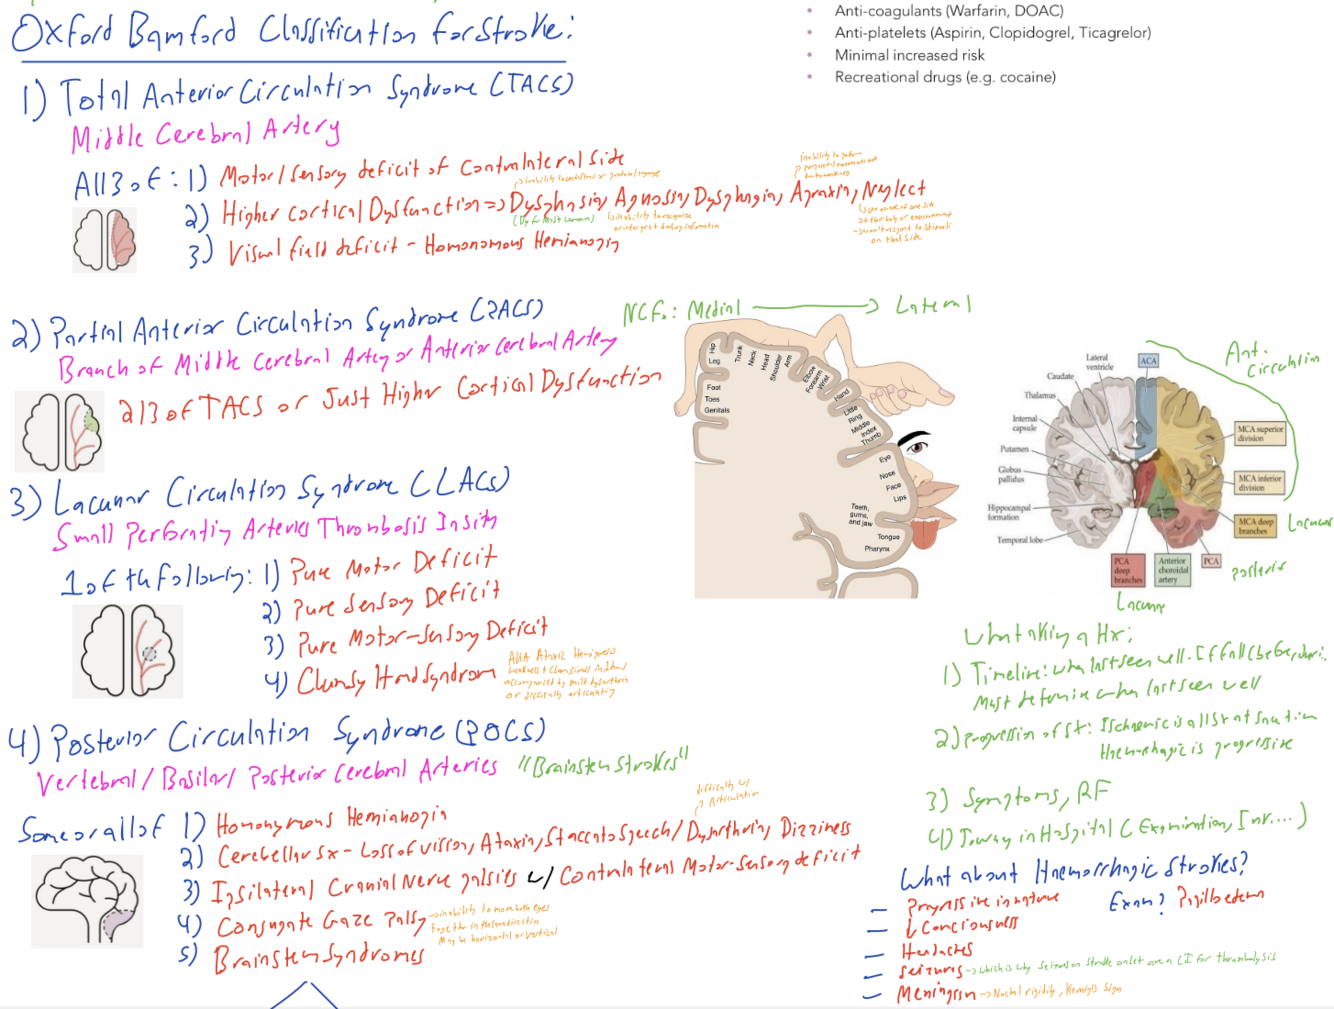 Oxford Bamford Classification for Stroke:
1) Total Anterior Circulation Syndrome (TACS)
Middle Cerebral Artery
All 3 of: 1) Motor/Sensory deficit of Contralateral Side
2) Higher cortical Dysfunction => Dysphasia, Agnosia, Dysphagia, Apraxia, Neglect
3) Visual field deficit - Homonomous Hemianopia
2) Partial Anterior Circulation Syndrome (PACS)
Branch of Middle Cerebral Artery or Anterior Cerebral Artery
2/3 of TACS or Just Higher Cortical Dysfunction
3) Lacunar Circulation Syndrome (LACS)
Small Perforating Arteries Thrombosis Insitu
1 of th following: 1) Pure Motor Deficit
2) Pure Sensory Deficit
3) Pure Motor-Sensory Deficit
4) Clumsy Hand Syndrom
AKA Ataxic Hemiparesis
4) Posterior Circulation Syndrome (POCS)
Vertebral/Basilar/Posterior Cerebral Arteries "Brainstem Strokes"
Some or all of 1) Homonymous Hemianopia
difficulty w/
Articulation
2) Cerebellar Sx - Loss of vision, Ataxia, Staccato Speech/Dysarthria, Dizziness
3) Ipsilateral Cranial Nerve palsies w/ Contralateral Motor-Sensory deficit
4) Conjugate Gaze Palsy
→ inability to move both eyes
together in the same direction
May be horizontal or vertical
5) Brainstem Syndromes
• Anti-coagulants (Warfarin, DOAC)
• Anti-platelets (Aspirin, Clopidogrel, Ticagrelor)
• Minimal increased risk
• Recreational drugs (e.g. cocaine)
Medial → Lateral
Hip
Leg
Foot
Toes
Genitals
Trunk
Neck
Head
Shoulder
Arm
Elbow
Forearm
Wrist
Hand
Little
Ring
Middle
Index
Thumb
Eye
Nose
Face
Lips
Teeth,
gums,
and jaw
Tongue
Pharynx
Ant.
Circulation
Lateral
ventricle
ACA
Caudate
Thalamus
Internal
capsule
Putamen
Globus
pallidus
Hippocampal
formation
Temporal lobe
MCA superior
division
MCA inferior
division
MCA deep
branches
Lacunar
PCA
deep
branches
Anterior
choroidal
artery
PCA
Posterior
Lacunar
What aking a Hx:
1) Timeline: when last seen well.
Must determine when last seen well
2) Progression of St: Ischaemic is all St at Same time
Haemorrhagic is progressive
3) Symptoms, RF
What about Haemorrhagic Strokes?
– Progressive in nature
– ↓ Conciousness
– Headaches
– Seizures → which is why Seizures on Stroke onset are a CI for thrombolysis
– Meningism → Nuchal rigidity, Kernigs Sign
Exam? Papilloedema